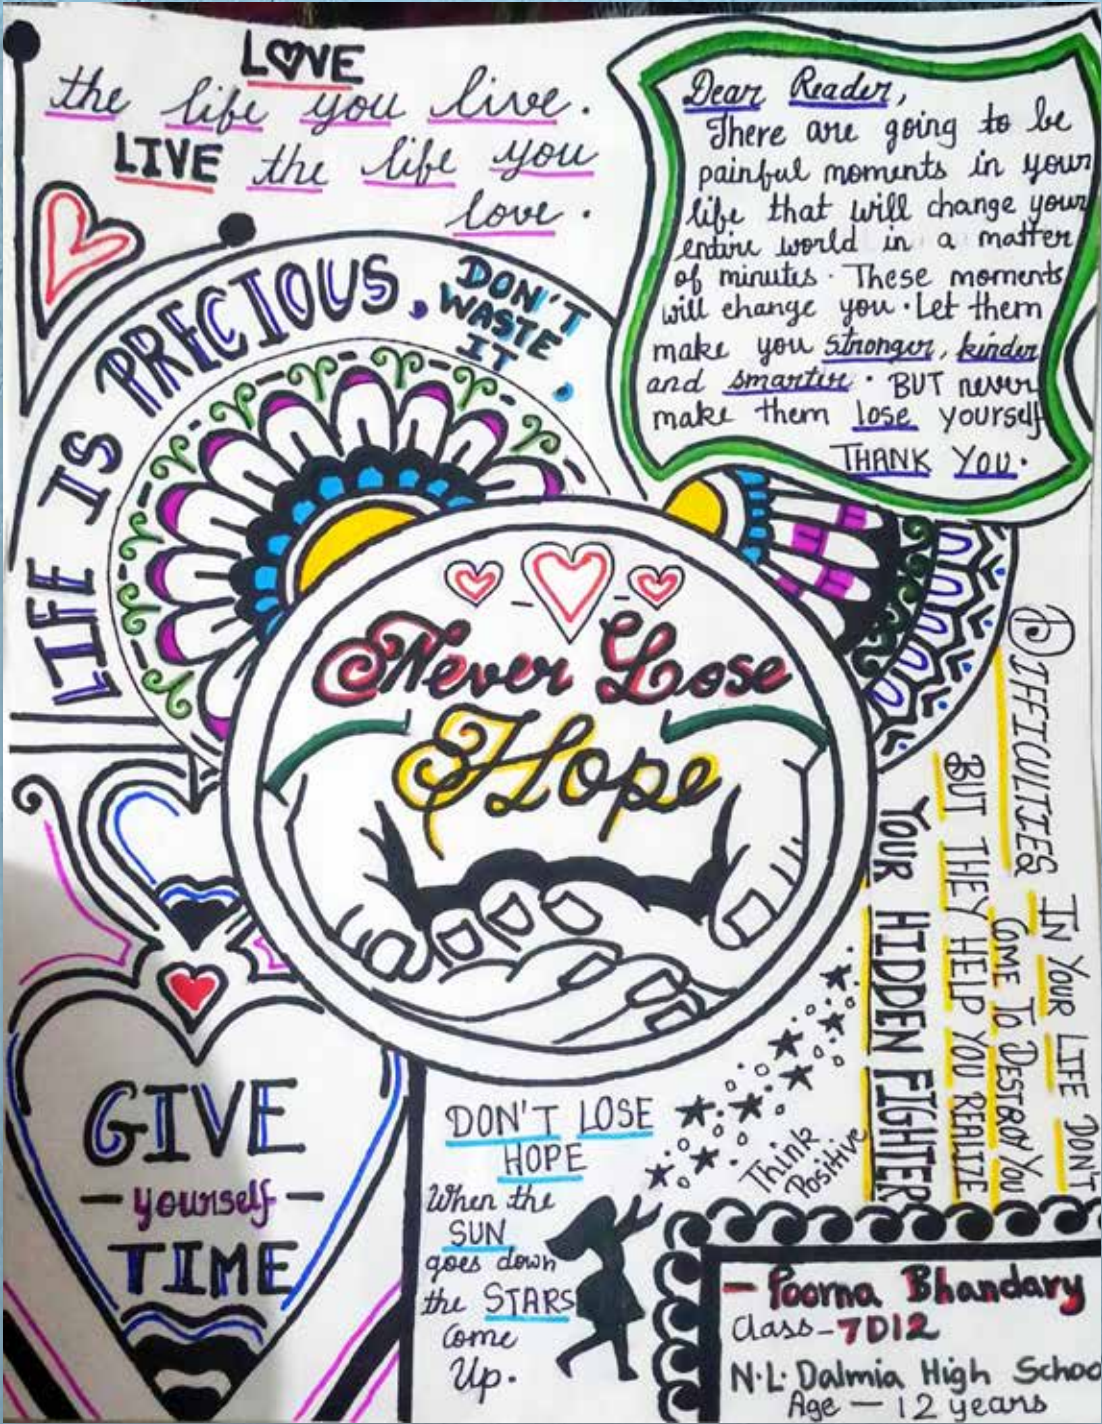 LOVE
the life you live.
LIVE the life you
love.
Dear Reader,
There are going to be
painful moments in your
life that will change your
entire world in a matter
of minutes. These moments
will change you. Let them
make you stronger, kinder
and smarter. BUT never
make them lose yourself
THANK YOU.
LIFE IS PRECIOUS.
DON'T
WASTE
IT.
Never Lose
Hope
DIFFICULTIES IN YOUR LIFE DON'T
COME TO DESTROY YOU
BUT THEY HELP YOU REALIZE
YOUR HIDDEN FIGHTER
GIVE
- yourself -
TIME
DON'T LOSE
HOPE
When the
SUN
goes down
the STARS
come
Up.
Think
Positive
- Poorna Bhandary
Class-7D12
N.L. Dalmia High Schoo
Age - 12 years